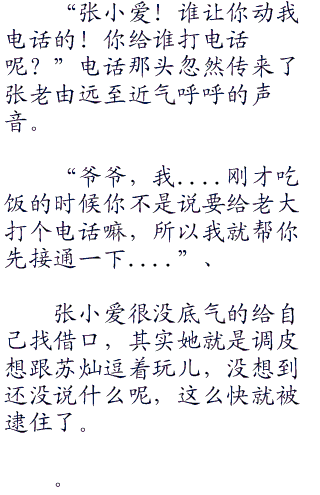 “张小爱！谁让你动我
电话的！你给谁打电话
呢？”电话那头忽然传来了
张老由远至近气呼呼的声
音。
“爷爷，我....刚才吃
饭的时候你不是说要给老大
打个电话嘛，所以我就帮你
先接通一下....”、
张小爱很没底气的给自
己找借口，其实她就是调皮
想跟苏灿逗着玩儿，没想到
还没说什么呢，这么快就被
逮住了。
。